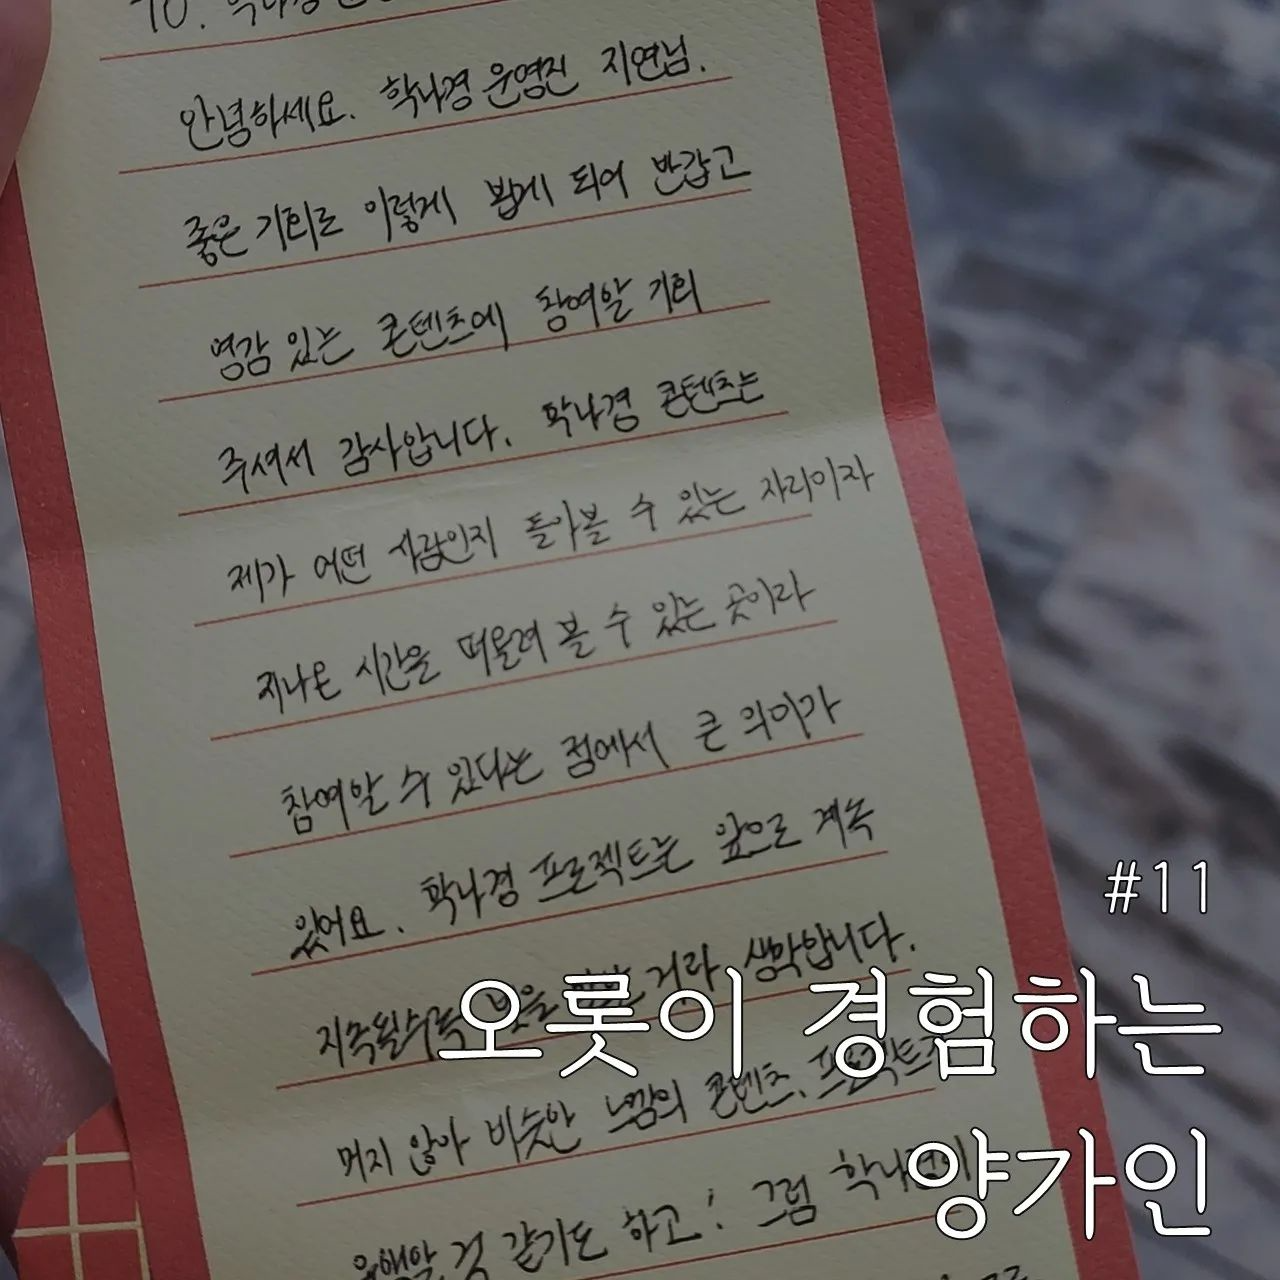 10.
안녕하세요. 학나경 운영진 지연님.
좋은 기회로 이렇게 뵙게 되어 반갑고
영감 있는 콘텐츠에 참여할 기회
주셔서 감사합니다. 학나경 콘텐츠는
제가 어떤 사람인지 돌아볼 수 있는 자리이자
지나온 시간을 떠올려 볼 수 있는 곳이라
참여할 수 있다는 점에서 큰 의미가
있어요. 학나경 프로젝트는 앞으로 계속
지속될수록 빛을 거라 생각합니다.
머지 않아 비슷한 느낌의 콘텐츠, 프로젝트가
유행할 것 같기도 하고! 그럼
#11
오롯이 경험하는
양가인